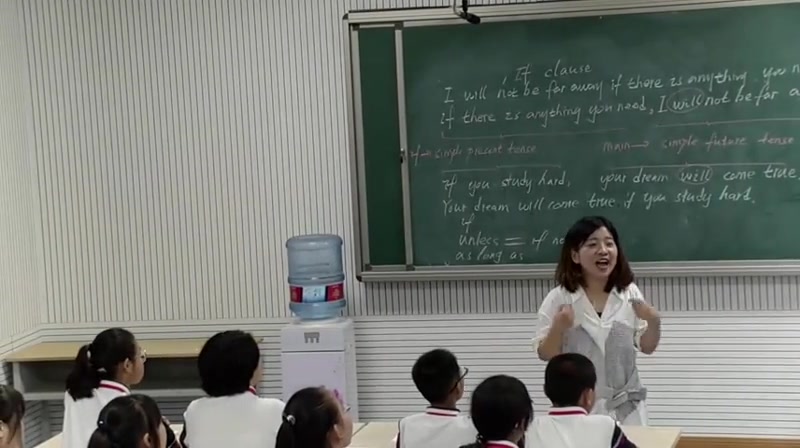 If clause
I will not be far away if there is anything you n
if there is anything you need, I will not be far a
if → simple present tense main → simple future tense
if you study hard, your dream will come true.
Your dream will come true if you study hard.
if
unless = if no
as long as